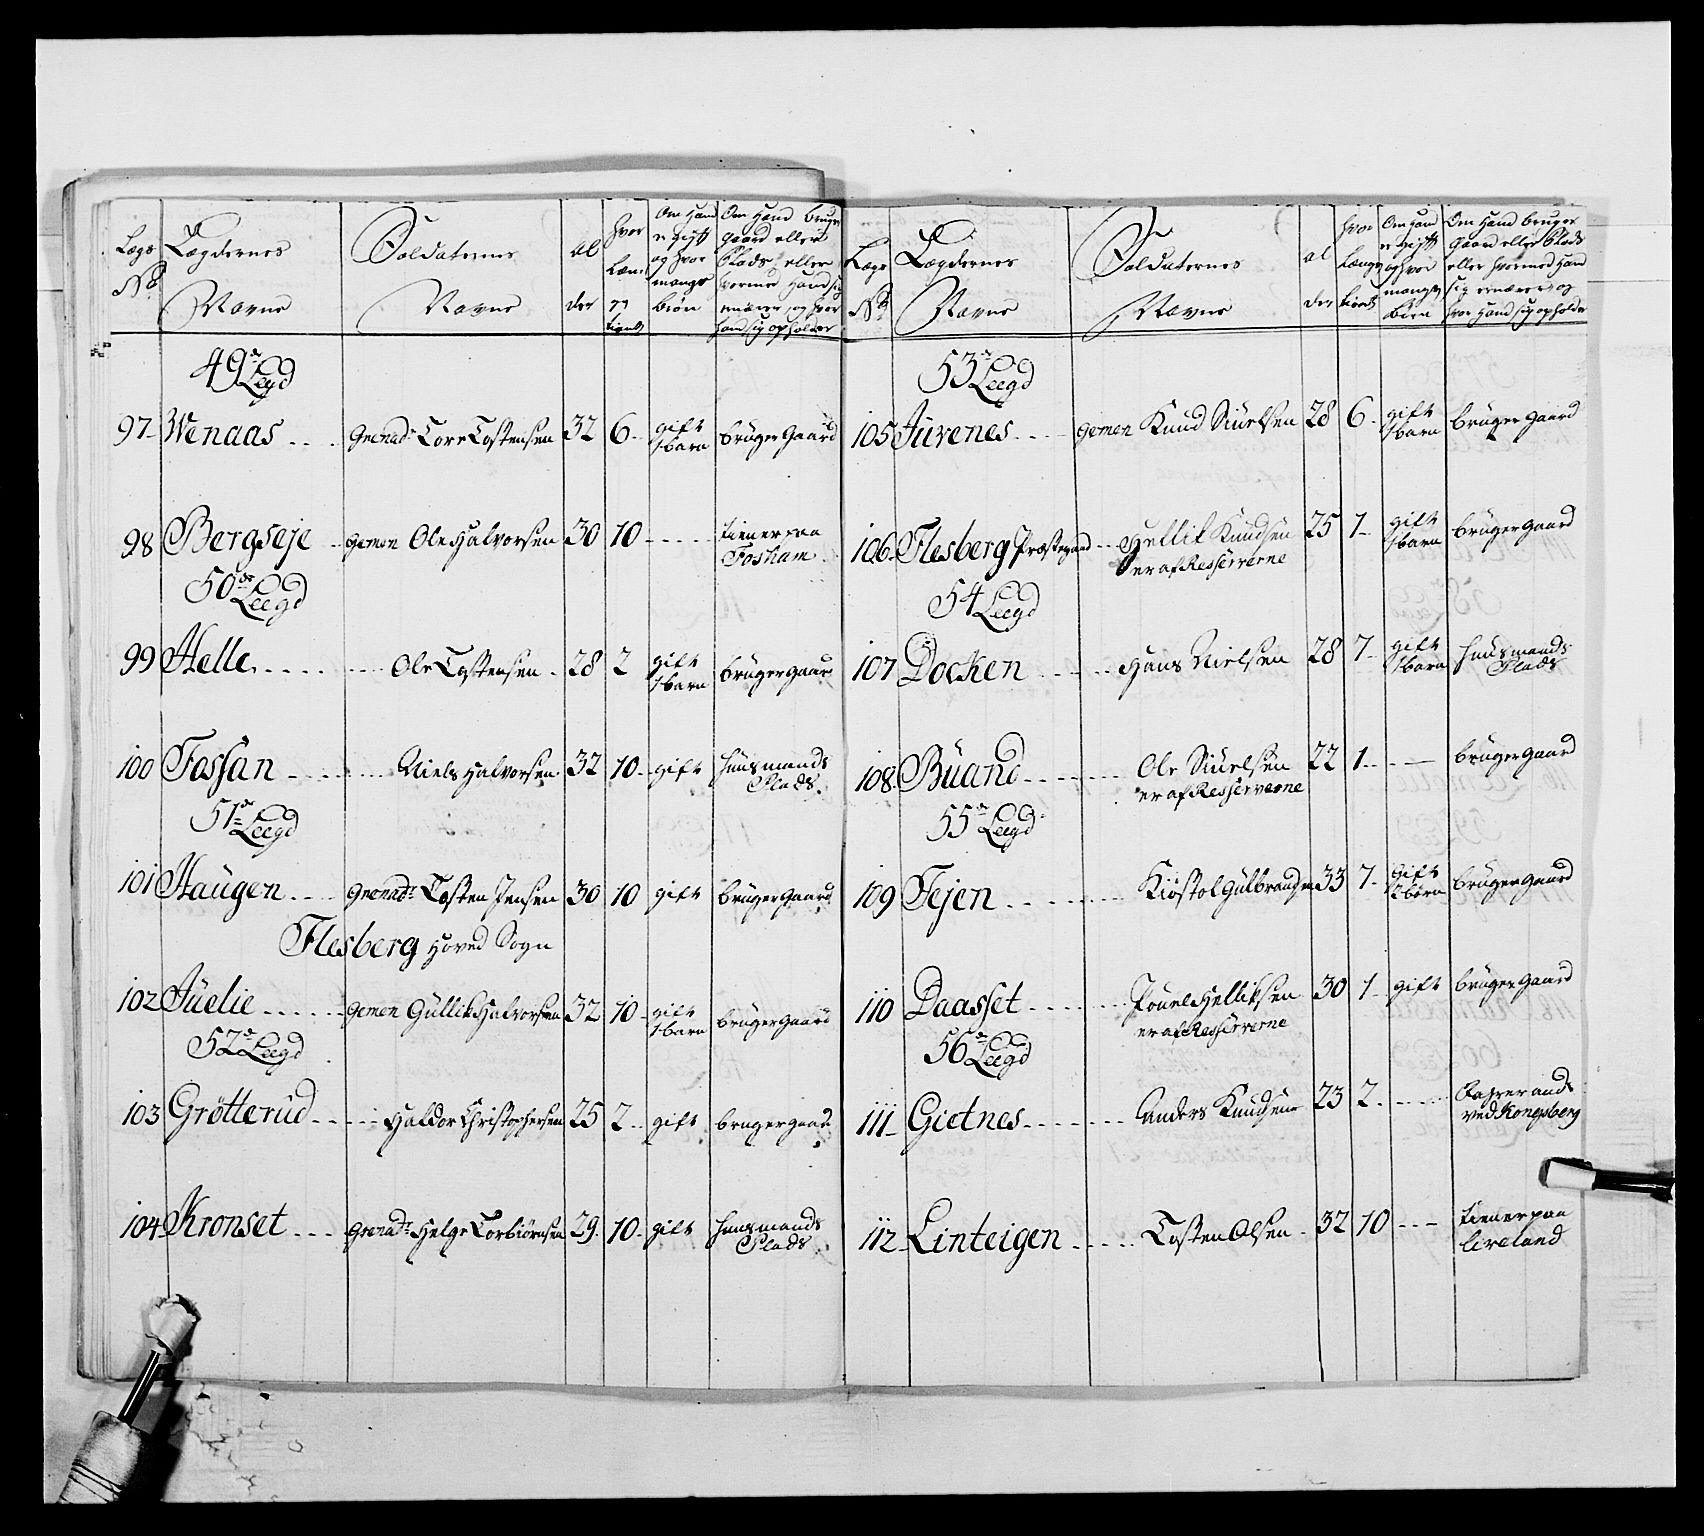 Legs No. Legdernes Navne
Soldaternes Navne
al der
hvor længe tient
Om Hand er gift og hvor mange børn
Om Hand bruger gaard eller Plads eller hvormed Hand sig ernærer og hvor Hand sig opholder
49de Legd
97 Wenaas .... Grenadr Tore Tostensen 32 6 gift 1 barn bruger gaard
98 Bergseje .. gemen Ole Halvorsen 30 10 ..... tiener paa Fosham
50de Leegd
99 Helle ..... Ole Tostensen 28 2 gift 1 barn bruger gaard
100 Fossan ..... Niels Halvorsen 32 10 gift Huusmands Plads
51de Leegd
101 Haugen .... Grenadr Tosten Jensen 30 10 gift bruger gaard
Flesberg Hoved Sogn
102 Juelie ..... gemen Güllik Halvorsen 32 10 gift 1 barn bruger gaard
52de Leegd
103 Grötterüd .... Haldor Christophersen 25 2 gift bruger gaard
104 Kronset .... Grenadr Helge Torbiörnsen 29 10 gift Huusmands Plads
Legs No. Legdernes Navne
Soldaternes Navne
al der
hvor længe tient
Om Hand er gift og hvor mange Børn
Om Hand bruger gaard eller Plads eller hvormed Hand sig ernærer og hvor Hand sig opholder
53de Leegd
105 Jüvenes .... gemen Knud Siüelsen 28 6 gift 1 barn bruger gaard
106 Flesberg Præstegaard ... Hellik Knudsen 25 1 gift 1 barn bruger gaard
er af Resserverne
54 Leegd
107 Docken .... Hans Nielsen 28 7 gift 1 barn Huusmands Plads
108 Büand ..... Ole Siüelsen 22 1 .... bruger gaard
er af Resserverne
55de Leegd
109 Fejen ..... Kiøstol Gülbrandsen 33 7 gift 2 børn bruger gaard
110 Daasset ..... Pouel Helliksen 30 1 gift bruger gaard
er af Resserverne
56de Leegd
111 Gietnes ...... Anders Knudsen 23 2 ....
ved Kongsberg
112 Linteigen .... Tosten Olsen 32 10 ... tiener paa Liveland